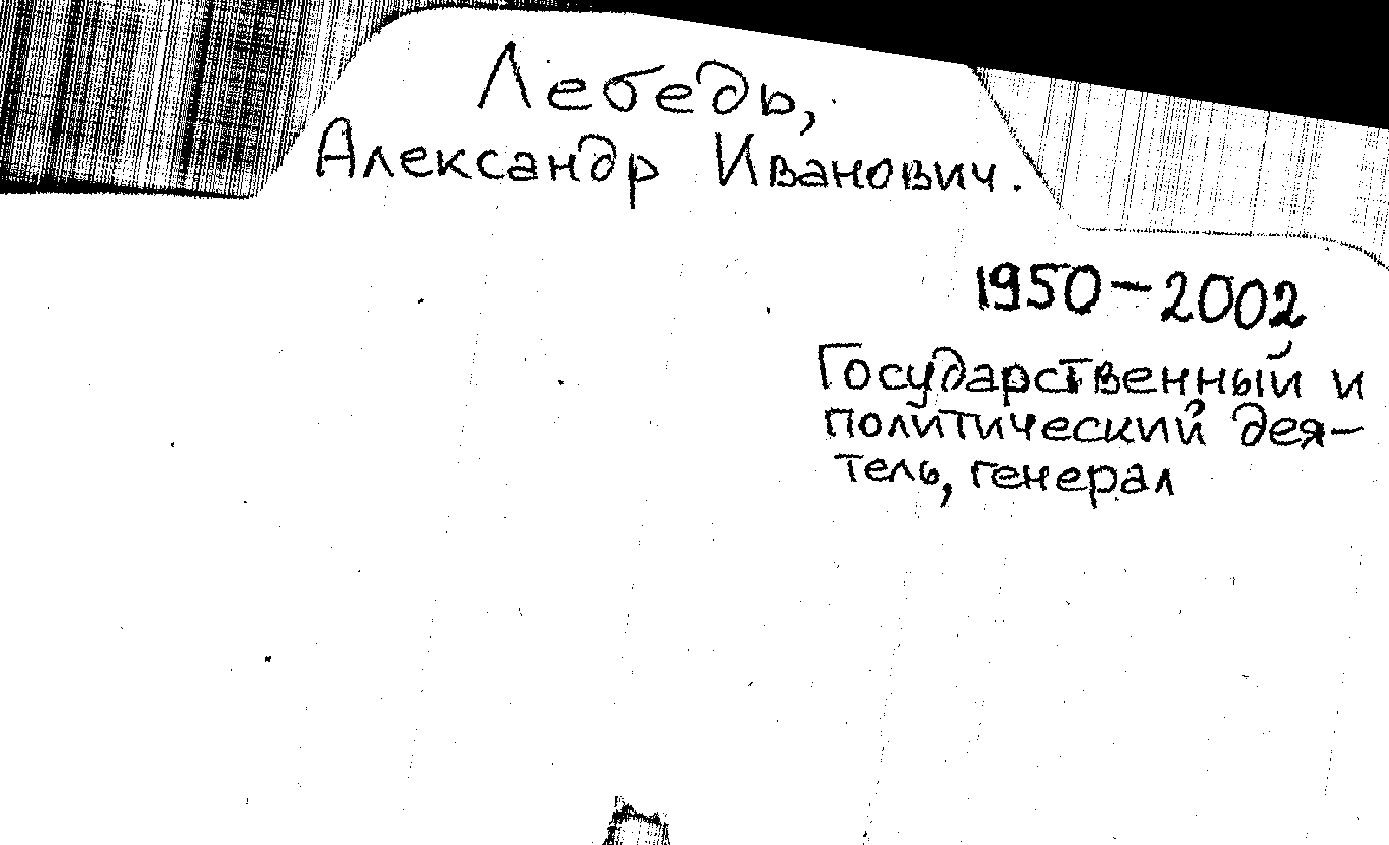 Лебедь,
Александр Иванович.
1950-2002
Государственный и
политический дея-
тель, генерал